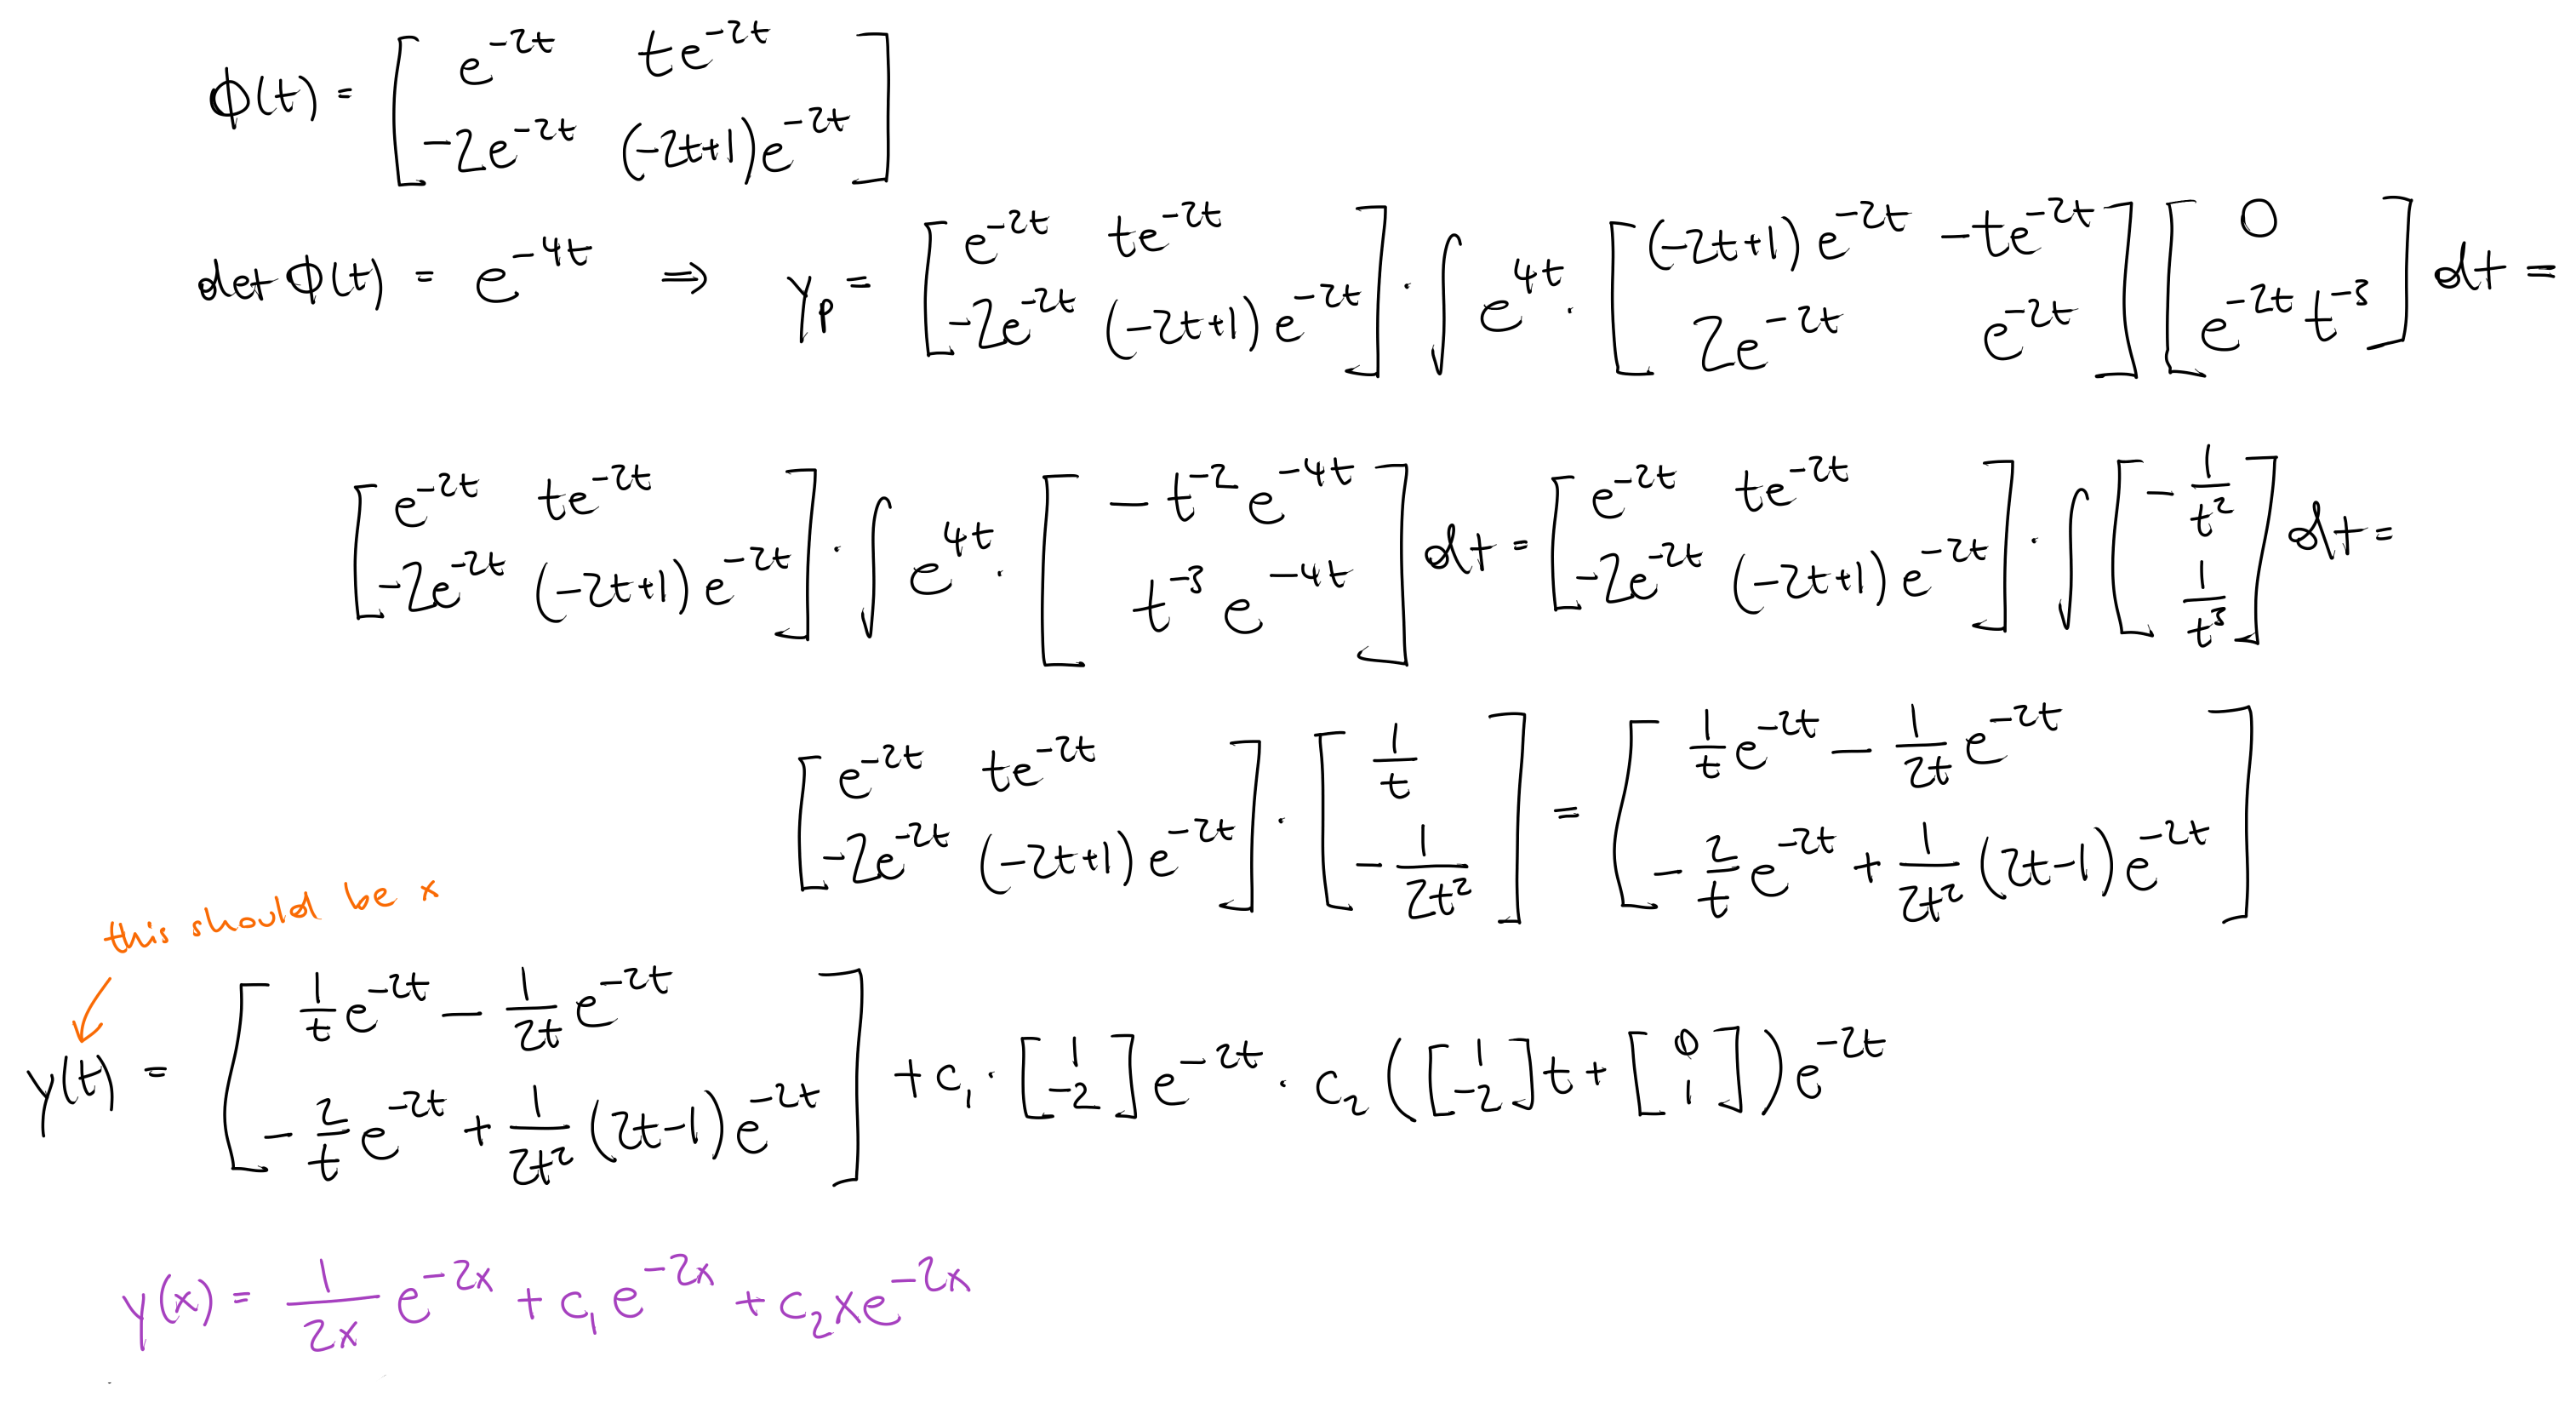 ϕ(t) = [ e^{-2t}  te^{-2t} ; -2e^{-2t}  (-2t+1)e^{-2t} ]
det ϕ(t) = e^{-4t} ⇒ y_p = [ e^{-2t}  te^{-2t} ; -2e^{-2t}  (-2t+1)e^{-2t} ] · ∫ e^{4t} · [ (-2t+1)e^{-2t}  -te^{-2t} ; 2e^{-2t}  e^{-2t} ] [ 0 ; e^{-2t} t^{-3} ] dt =
[ e^{-2t}  te^{-2t} ; -2e^{-2t}  (-2t+1)e^{-2t} ] · ∫ e^{4t} · [ -t^{-2} e^{-4t} ; t^{-3} e^{-4t} ] dt = [ e^{-2t}  te^{-2t} ; -2e^{-2t}  (-2t+1)e^{-2t} ] · ∫ [ -1/t^2 ; 1/t^3 ] dt =
[ e^{-2t}  te^{-2t} ; -2e^{-2t}  (-2t+1)e^{-2t} ] · [ 1/t ; -1/2t^2 ] = [ 1/t e^{-2t} - 1/2t e^{-2t} ; -2/t e^{-2t} + 1/2t^2 (2t-1)e^{-2t} ]
this should be x
y(t) = [ 1/t e^{-2t} - 1/2t e^{-2t} ; -2/t e^{-2t} + 1/2t^2 (2t-1)e^{-2t} ] + c_1 · [ 1 ; -2 ] e^{-2t} · c_2 ( [ 1 ; -2 ] t + [ 0 ; 1 ] ) e^{-2t}
y(x) = 1/2x e^{-2x} + c_1 e^{-2x} + c_2 xe^{-2x}